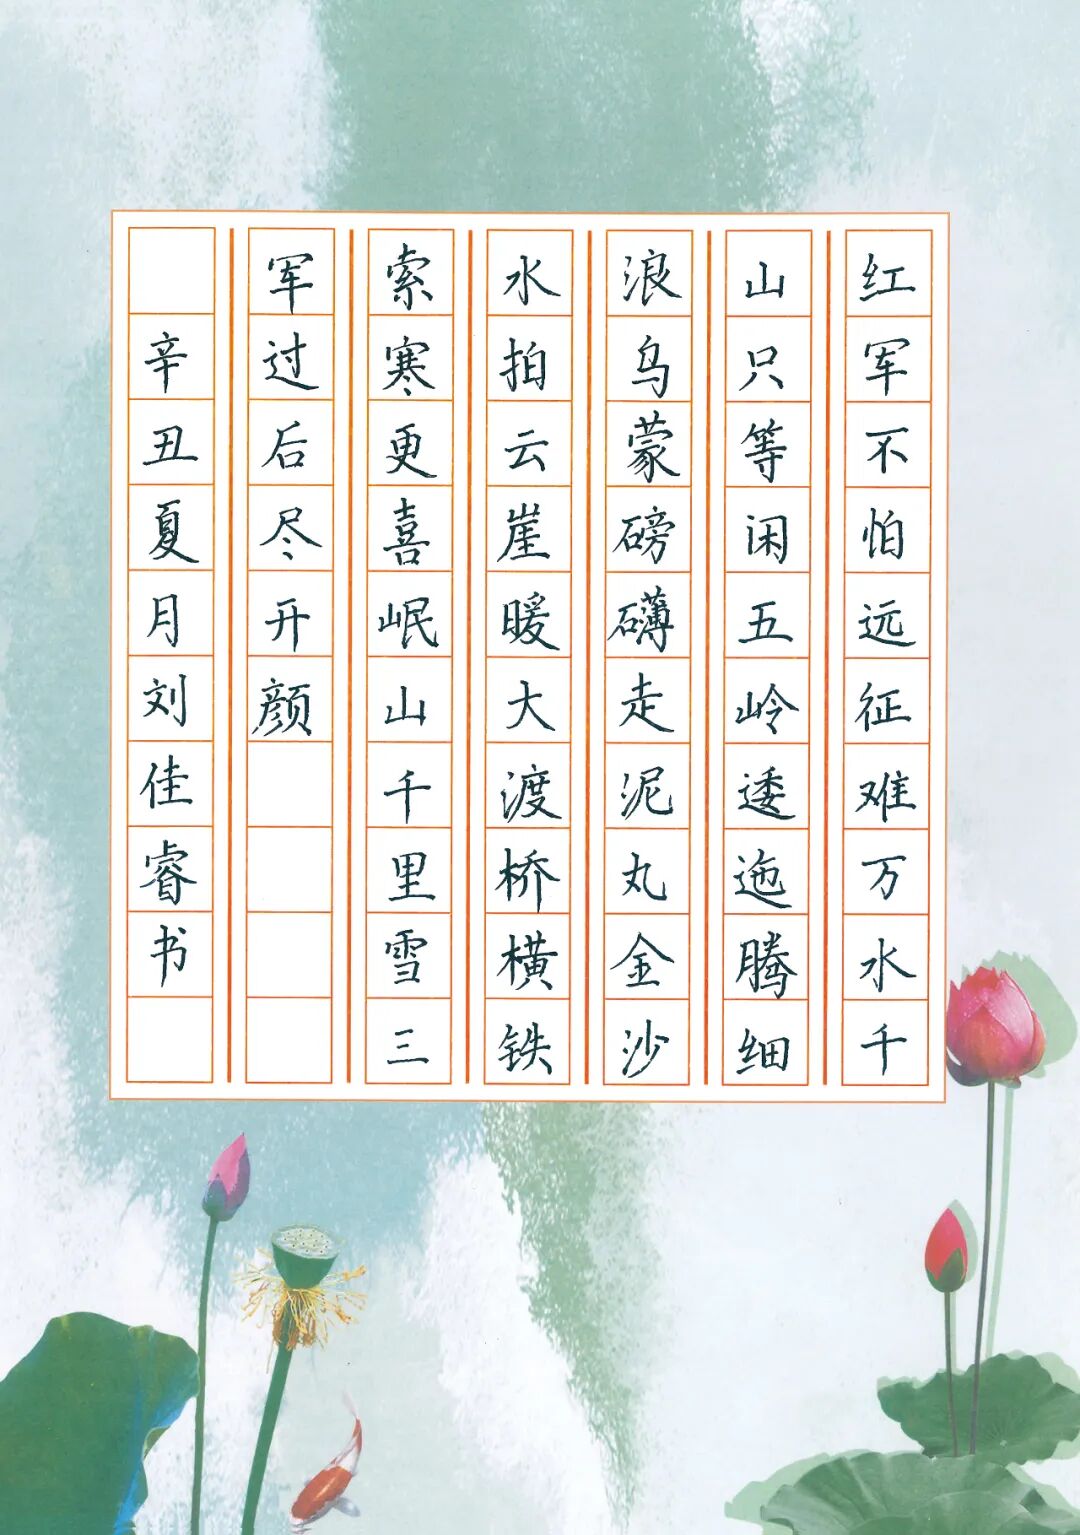 红军不怕远征难万水千
山只等闲五岭逶迤腾细
浪乌蒙磅礴走泥丸金沙
水拍云崖暖大渡桥横铁
索寒更喜岷山千里雪三
军过后尽开颜
辛丑夏月刘佳睿书